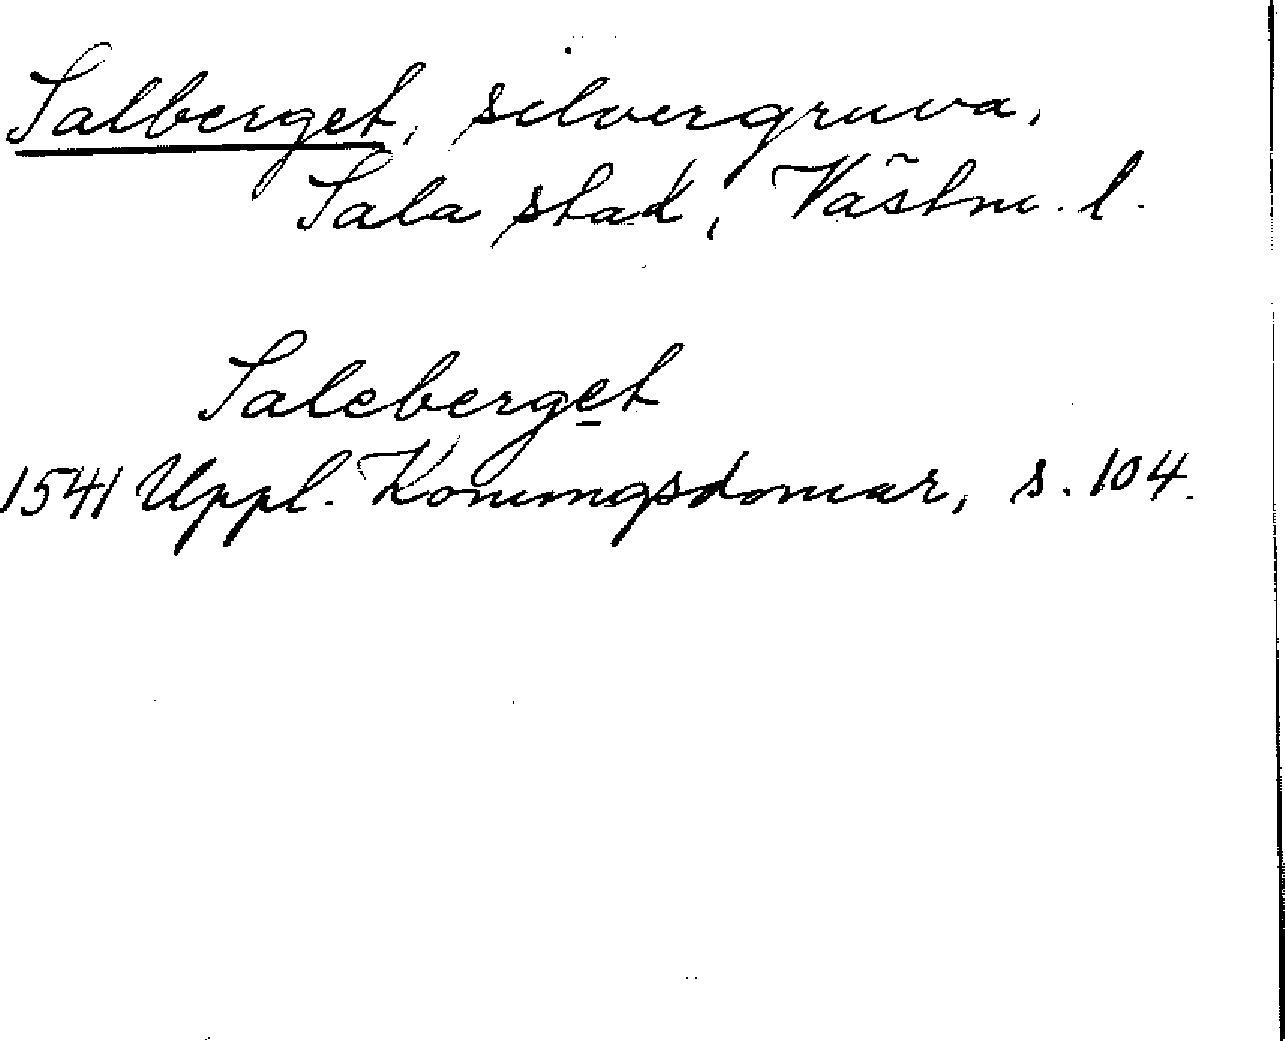 Salberget, silvergruva,
Sala stad, Västm. l.
Saleberget
1541 Uppl. Konungsdomar, s. 104.